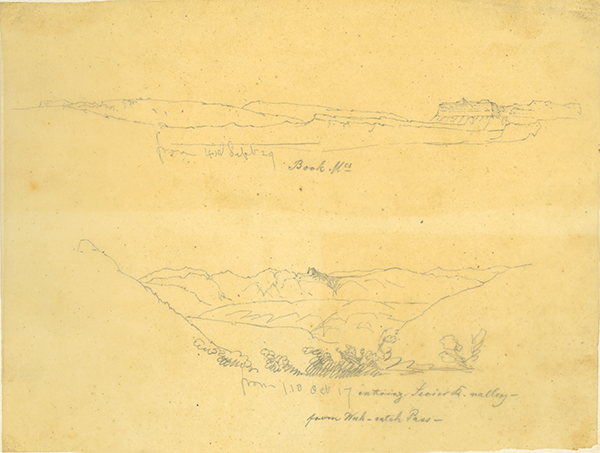 from 44 Sept 29
Book Mts
from 110 Oct 17 entering Sevier R. valley -
from Wah-satch Pass -